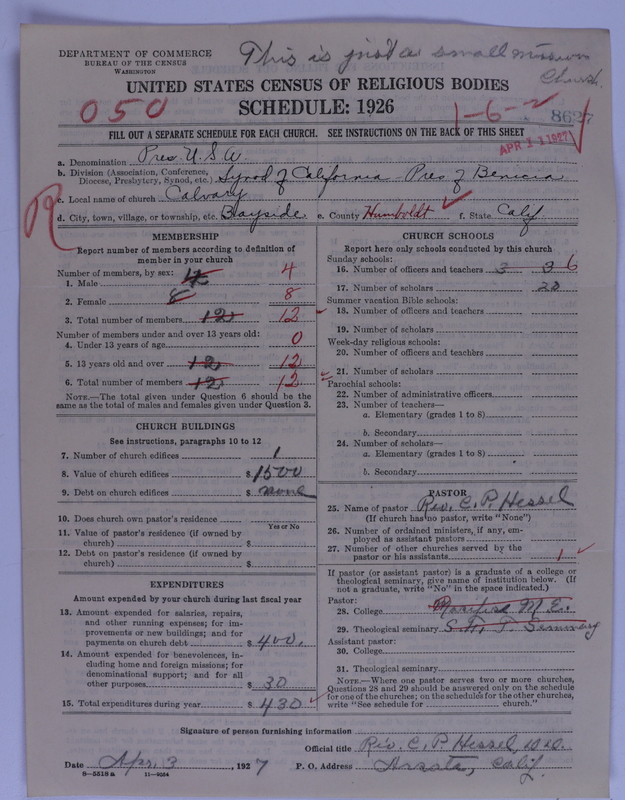 DEPARTMENT OF COMMERCE
BUREAU OF THE CENSUS
WASHINGTON
This is just a small mission
Church.
UNITED STATES CENSUS OF RELIGIOUS BODIES
SCHEDULE: 1926
050
1-6-2
8627
APR 11 1927
FILL OUT A SEPARATE SCHEDULE FOR EACH CHURCH. SEE INSTRUCTIONS ON THE BACK OF THIS SHEET
a. Denomination Pres U.S.A.
b. Division (Association, Conference, Diocese, Presbytery, Synod, etc.) Synod of California Pres of Benicia
c. Local name of church Calvary
d. City, town, village, or township, etc. Bayside e. County Humboldt f. State Calif
R
MEMBERSHIP
Report number of members according to definition of
member in your church
Number of members, by sex:
1. Male 4 4
2. Female 8 8
3. Total number of members 12 12
Number of members under and over 13 years old:
4. Under 13 years of age 0
5. 13 years old and over 12 12
6. Total number of members 12 12
NOTE.—The total given under Question 6 should be the
same as the total of males and females given under Question 3.
CHURCH BUILDINGS
See instructions, paragraphs 10 to 12
7. Number of church edifices 1
8. Value of church edifices $ 1500
9. Debt on church edifices $ none
10. Does church own pastor's residence
Yes or No
11. Value of pastor's residence (if owned by
church) $
12. Debt on pastor's residence (if owned by
church) $
EXPENDITURES
Amount expended by your church during last fiscal year
13. Amount expended for salaries, repairs,
and other running expenses; for im-
provements or new buildings; and for
payments on church debt $ 400.
14. Amount expended for benevolences, in-
cluding home and foreign missions; for
denominational support; and for all
other purposes $ 30
15. Total expenditures during year $ 430
CHURCH SCHOOLS
Report here only schools conducted by this church
Sunday schools:
16. Number of officers and teachers 3 3 6
17. Number of scholars 20
Summer vacation Bible schools:
18. Number of officers and teachers
19. Number of scholars
Week-day religious schools:
20. Number of officers and teachers
21. Number of scholars
Parochial schools:
22. Number of administrative officers
23. Number of teachers—
a. Elementary (grades 1 to 8)
b. Secondary
24. Number of scholars—
a. Elementary (grades 1 to 8)
b. Secondary
PASTOR
25. Name of pastor Rev. C. P. Hessel
(If church has no pastor, write "None")
26. Number of ordained ministers, if any, em-
ployed as assistant pastors
27. Number of other churches served by the
pastor or his assistants 1
If pastor (or assistant pastor) is a graduate of a college or
theological seminary, give name of institution below. (If
not a graduate, write "No" in the space indicated.)
Pastor:
28. College M.E.
29. Theological seminary S.F. T. Seminary
Assistant pastor:
30. College
31. Theological seminary
NOTE.—Where one pastor serves two or more churches,
Questions 28 and 29 should be answered only on the schedule
for one of the churches; on the schedules for the other churches,
write "See schedule for church."
Signature of person furnishing information
Official title Rev. C. P. Hessel
Date Apr. 3, 1927 P. O. Address Arcata, Calif.
8—5518a 11—9054